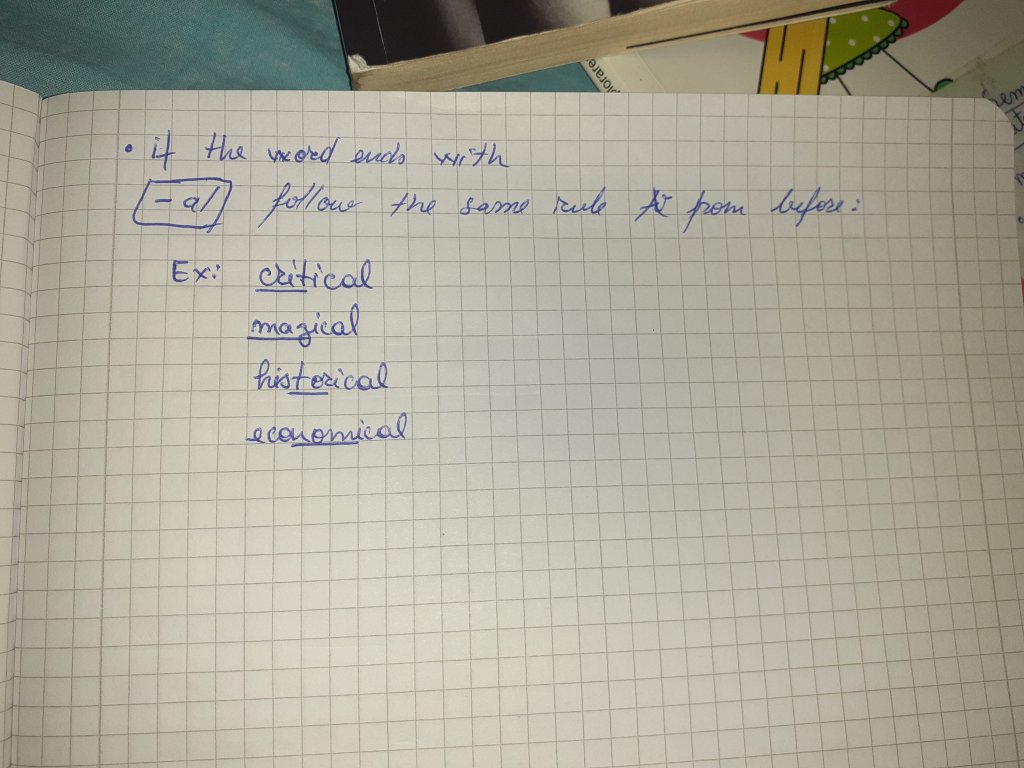 plorare
em
• if the word ends with
-al follow the same rule from before:
Ex: critical
magical
historical
economical